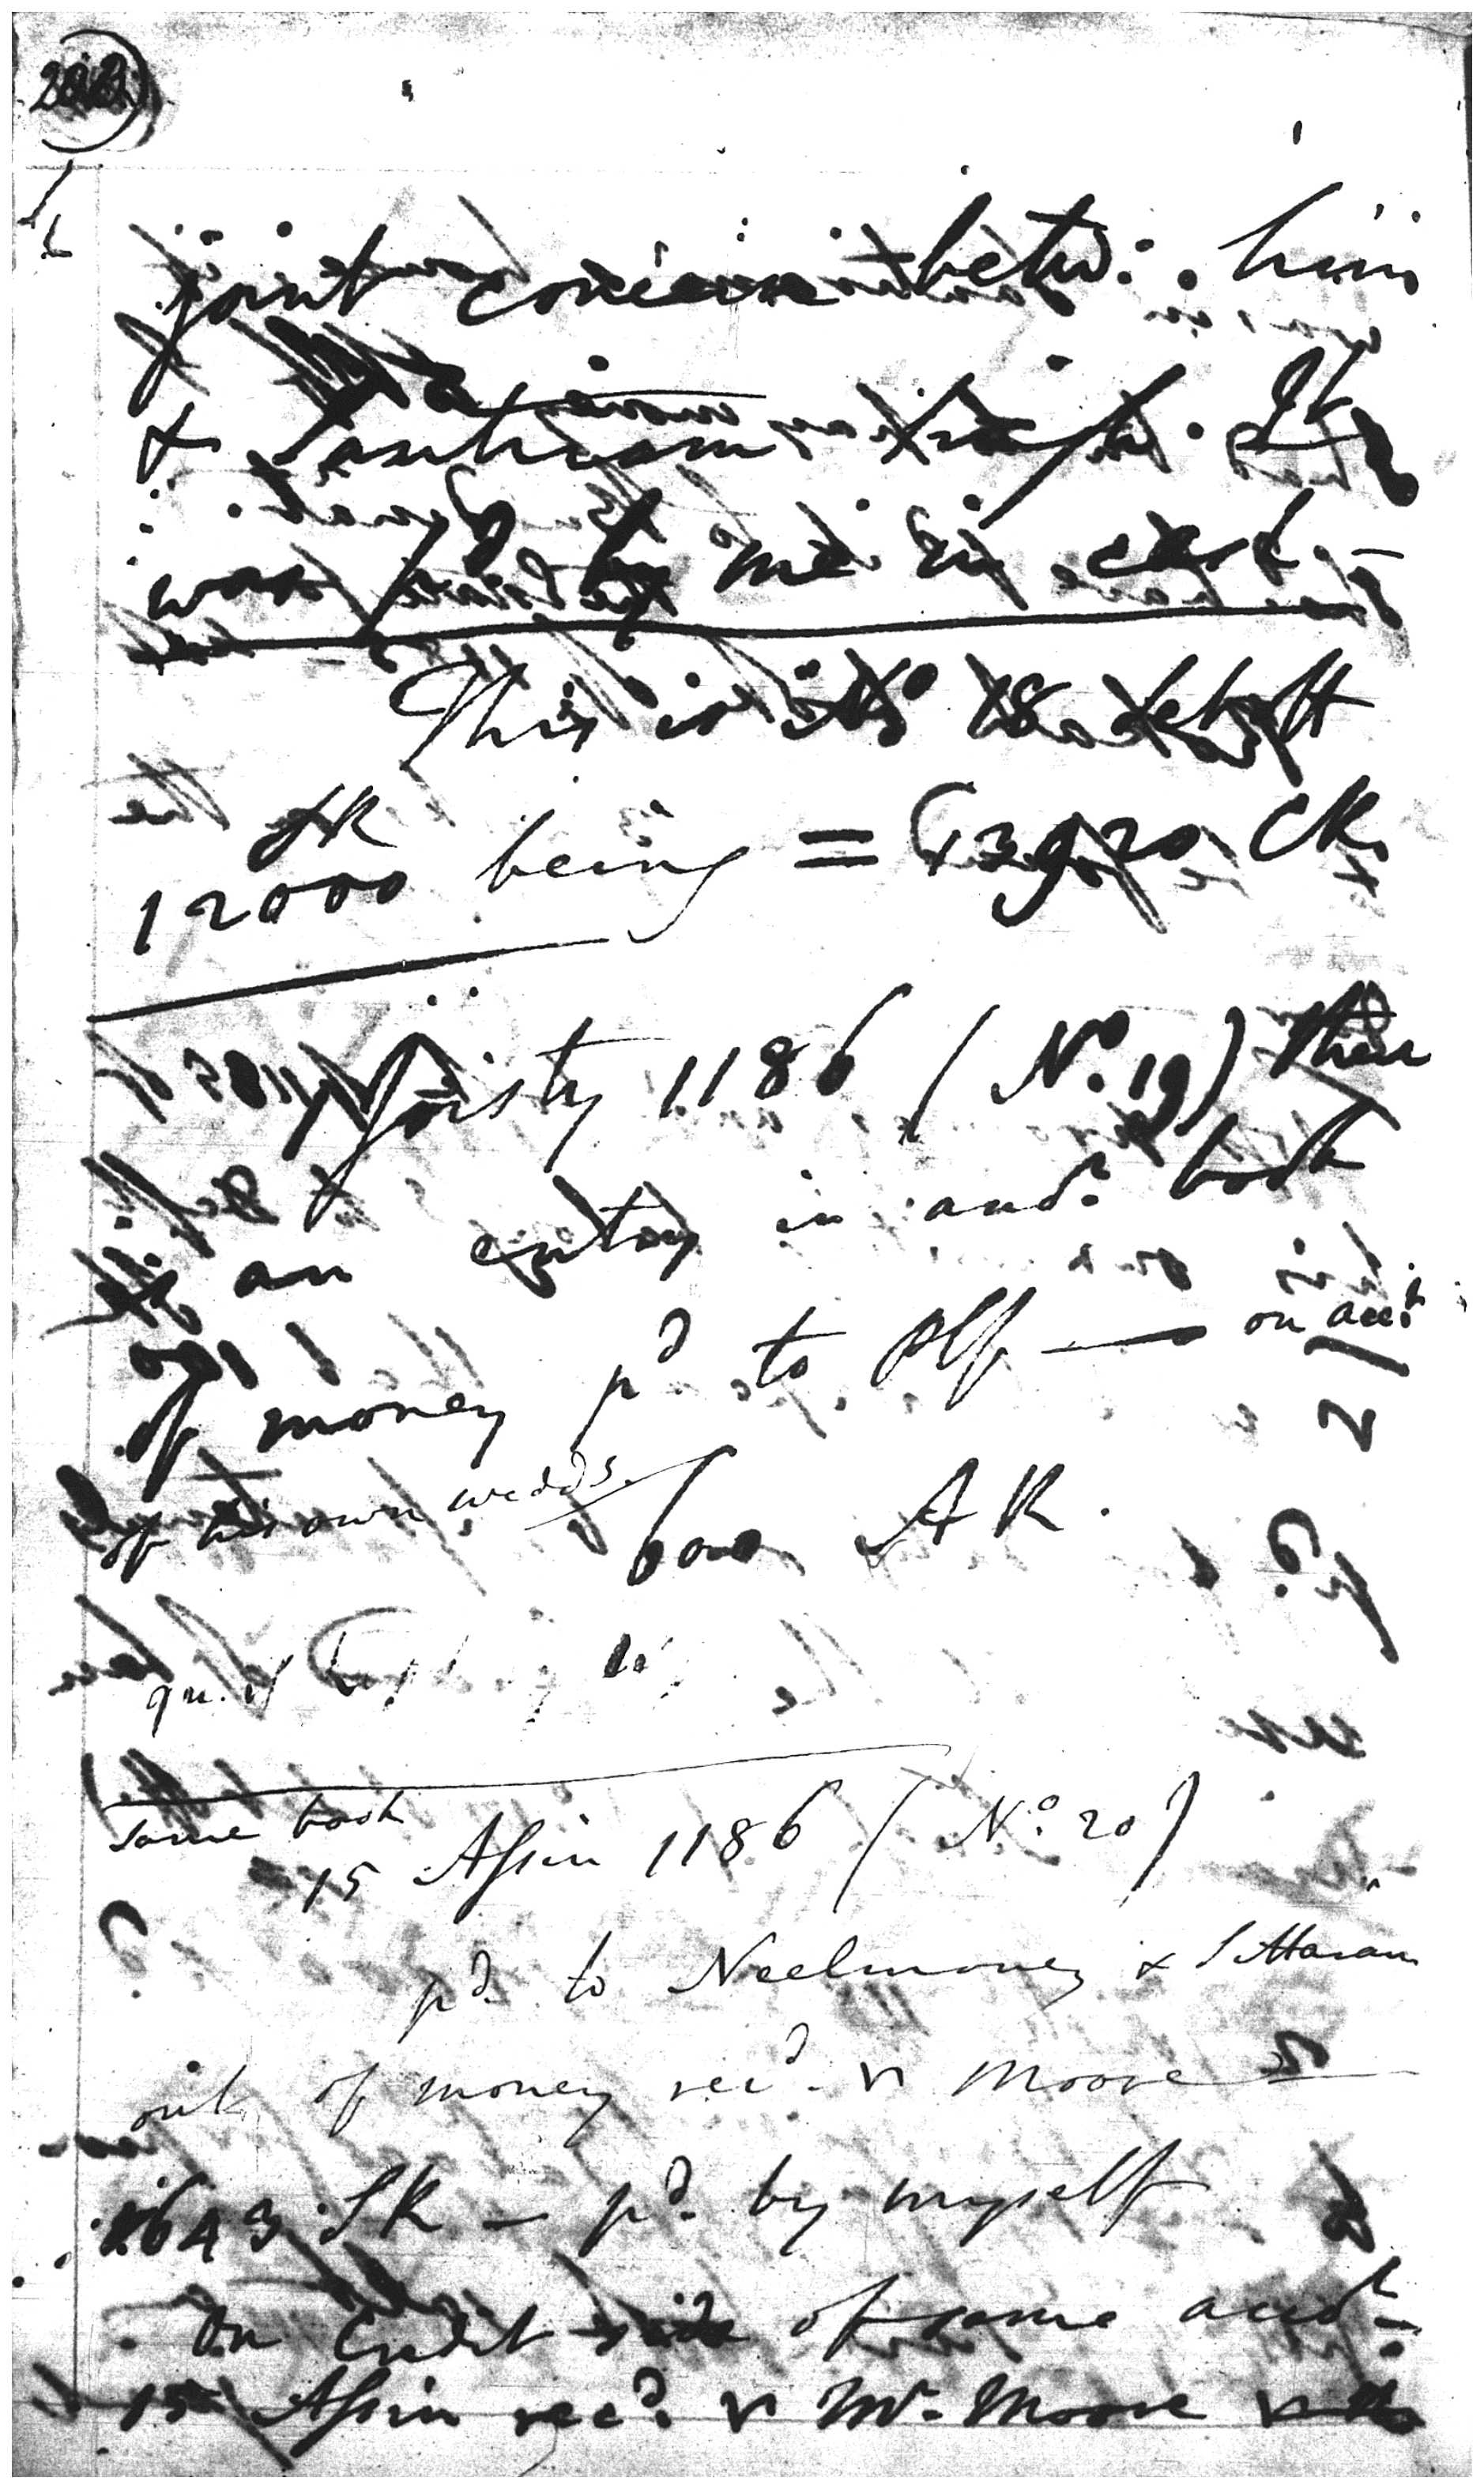 joint concern betw: him
& Santiram Singh. It
was pd by me in cash -
This is No 18 debt
SR
12000 being = 13920 CR.
Joisty 1186 (No. 19) there
is an entry in acct book
of money pd to Plf — on acct
of his own wedds.
600 AR.
qu. if
same book
15 Assin 1186 (No. 20)
pd. to Neelmoney & Sittaram
out of money recd. Moore
2643 SR - pd. by myself
On Credit side of same acct
15 Assin recd. Mr. Moore